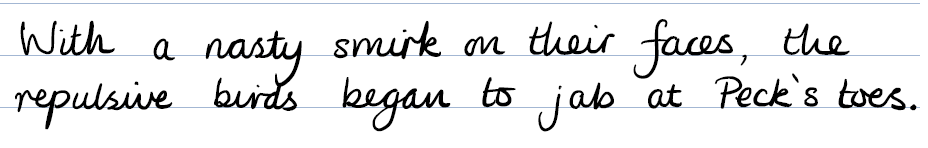 With a nasty smirk on their faces, the
repulsive birds began to jab at Peck's toes.